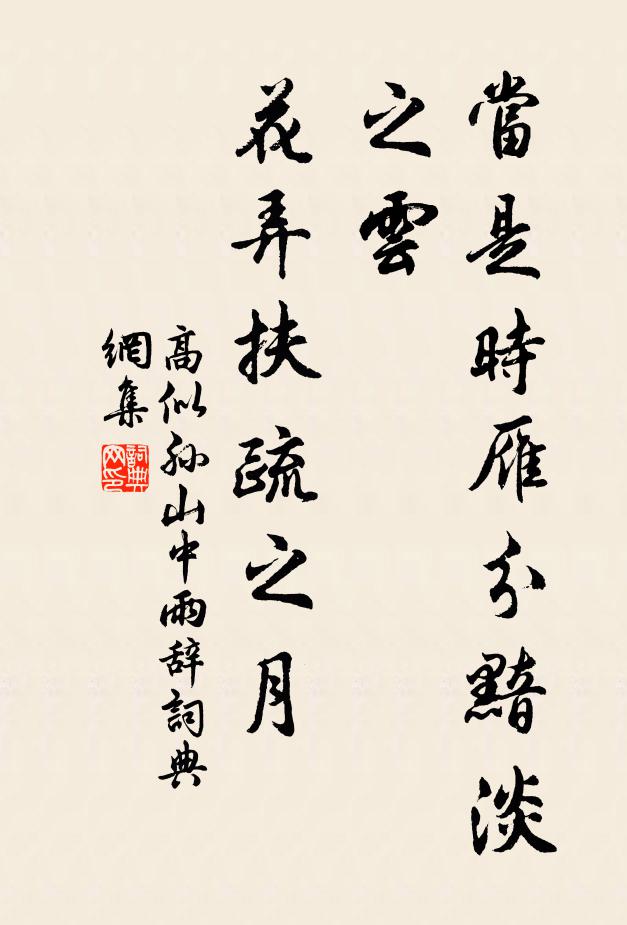 當是時雁分黯淡
之雲
花弄扶疏之月
高似孙山中雨辞詞典
網集
詞典網印